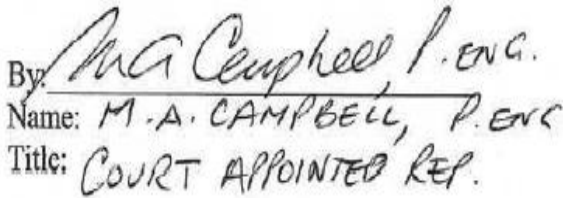 By: MA Campbell, P. ENG.
Name: M.A. CAMPBELL, P. ENG
Title: COURT APPOINTED REP.